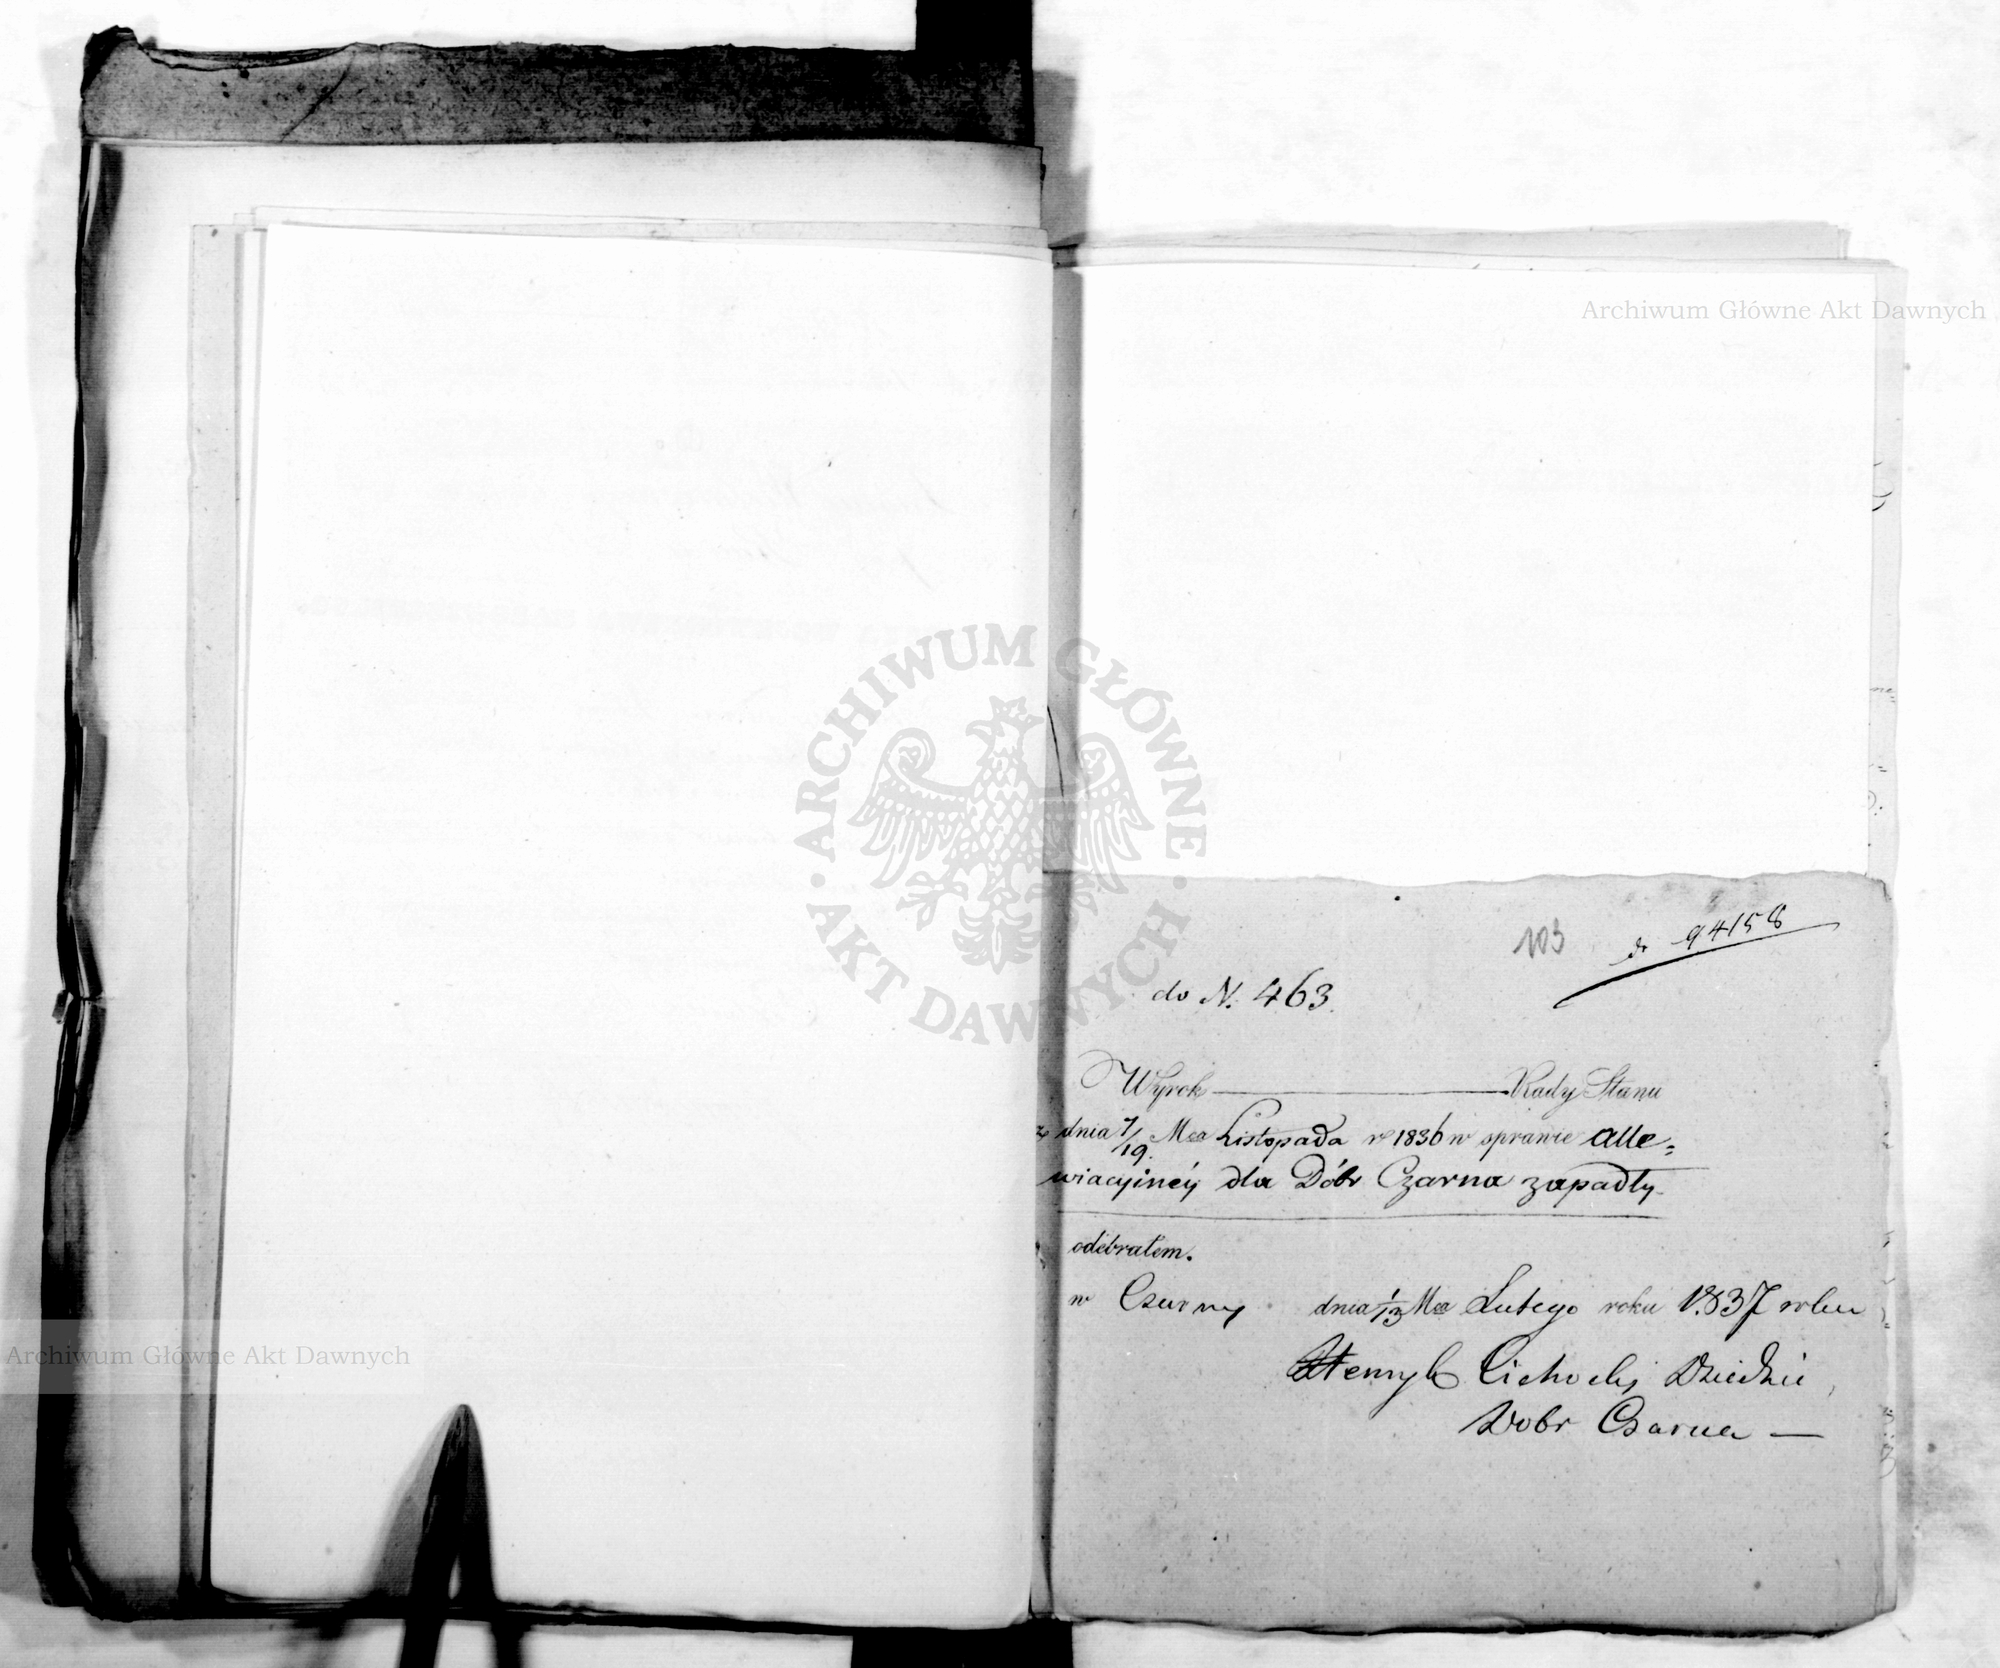 Archiwum Główne Akt Dawnych
ARCHIWUM GŁÓWNE · AKT DAWNYCH ·
103
do 94158
do N. 463.
Wyrok Rady Stanu
z dnia 7/19. Mca Listopada r 1836 w sprawie alle=
wiacyinéy dla Dóbr Czarna zapadły
odebrałem.
w Czarny dnia 1/13 Mca Lutego roku 1837 roku
Cichocki Dziedzic
Dobr Czarna —
Archiwum Główne Akt Dawnych